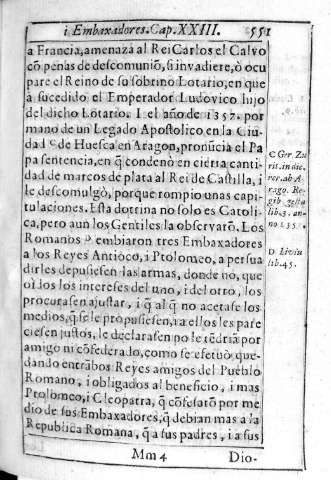 i Embaxadores. Cap. XXIII. 551
a Francia, amenaza al Rei Carlos el Calvo
cõ penas de descomuniõ, si invadiere, ò ocu
pare el Reino de su sobrino Lotario, en que
à sucedido el Emperador Ludovico hijo
del dicho Lotario. I el año de 1357. por
mano de un Legado Apostolico en la Ciu
dad c de Huesca en Aragon, pronũcia el Pa
pa sentencia, en q̃ condenò en cierta canti-
dad de marcos de plata al Rei de Castilla, i
le descomulgò, porque rompio unas capi-
tulaciones. Esta dotrina no solo es Catoli-
ca, pero aun los Gentiles la observarõ. Los
Romanos D embiaron tres Embaxadores
a los Reyes Antioco, i Ptolomeo, a persua
dirles depusiesen las armas, donde no, que
oìdos los intereses del uno, i del otro, los
procurasen ajustar, i q̃ al q̃ no acetase los
medios, q̃ se le propusiesen, i a ellos les pare
ciesen justos, le declarasen no le tẽdriã por
amigo ni cõfederado, como se efetuò que-
dando entrãbos Reyes amigos del Pueblo
Romano, i obligados al beneficio, i mas
Ptolomeo, i Cleopatra, q̃ cõfesarõ por me
dio de sus Embaxadores, q̃ debian mas a la
Republica Romana, q̃ a sus padres, i a sus
Mm 4 Dio-
C Ger. Zu
rit. in dic.
rer. ab A
rago. Re-
gib. gesta
lib. 3. an-
no 135
D Liviu
lib. 45.